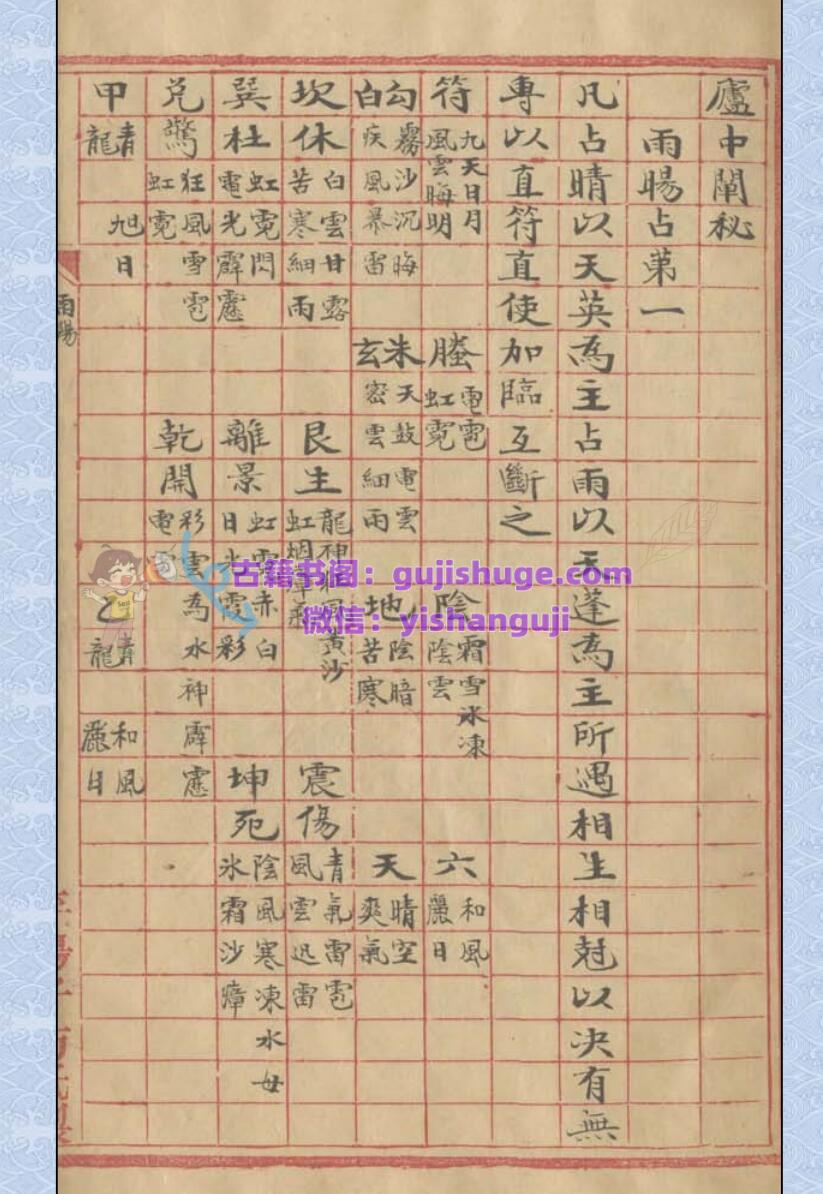 廬中闡秘
雨暘占第一
凡占晴以天英為主占雨以天蓬為主所遇相生相尅以决有無
專以直符直使加臨互斷之
符 九天日月風雲晦明 螣 電雹虹霓 陰 霜雪冰凍陰雲 六 和風麗日
勾 霧沙沉晦 白 疾風暴雷 朱 天鼓電雲 玄 密雲細雨 地 陰暗苦寒 天 晴空爽氣
坎休 白雲甘露苦寒細雨 艮生 龍神 黃沙虹 震傷 青氣雷雹風雲迅雷
巽杜 虹霓閃電光霹靂 離景 虹 赤白日光雪彩 坤死 陰風寒凍水母氷霜沙瘴
兌驚 狂風雪雹虹霓 乾開 彩雲為水神霹靂電
甲 青龍 旭日 乙 青龍 和風麗日
雨暘
古籍书阁：gujishuge.com
微信：yishanguji